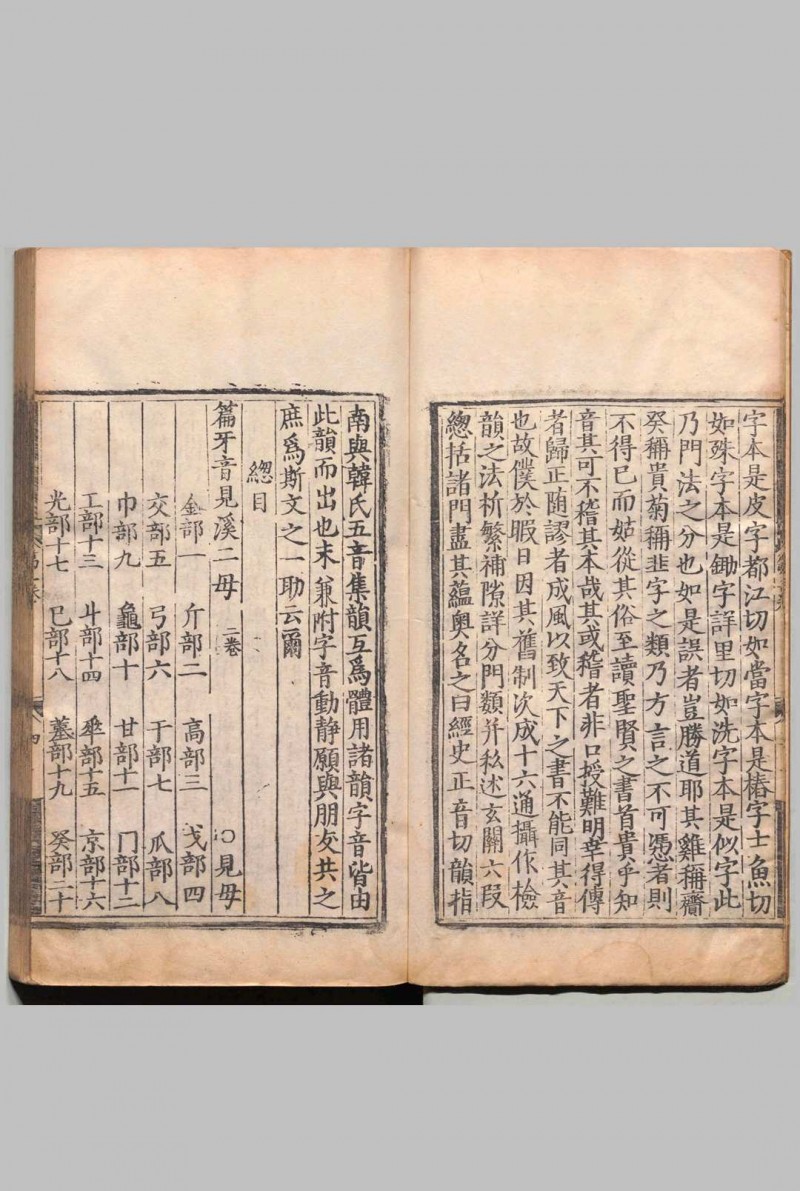 字本是皮字都江切如當字本是樁字士魚切
如殊字本是鋤字詳里切如洗字本是似字此
乃門法之分也如是誤者豈勝道耶其雞稱齏
癸稱貴菊稱韭字之類乃方言之不可憑者則
不得已而姑從其俗至讀聖賢之書首貴乎知
音其可不稽其本哉其或稽者非口授難明幸得傳
者歸正隨謬者成風以致天下之書不能同其音
也故僕於暇日因其舊制次成十六通攝作檢
韻之法析繁補隙詳分門類并私述玄關六段
緫括諸門盡其蘊奧名之曰經史正音切韻指
南與韓氏五音集韻互爲體用諸韻字音皆由
此韻而出也末兼附字音動静願與朋友共之
庶爲斯文之一助云爾
緫目
篇牙音見溪二母 二卷 ○見母
金部一 斤部二 高部三 戈部四
交部五 弓部六 干部七 瓜部八
巾部九 龜部十 甘部十一 门部十二
工部十三 斗部十四 𠦬部十五 京部十六
光部十七 巳部十八 部十九 癸部二十